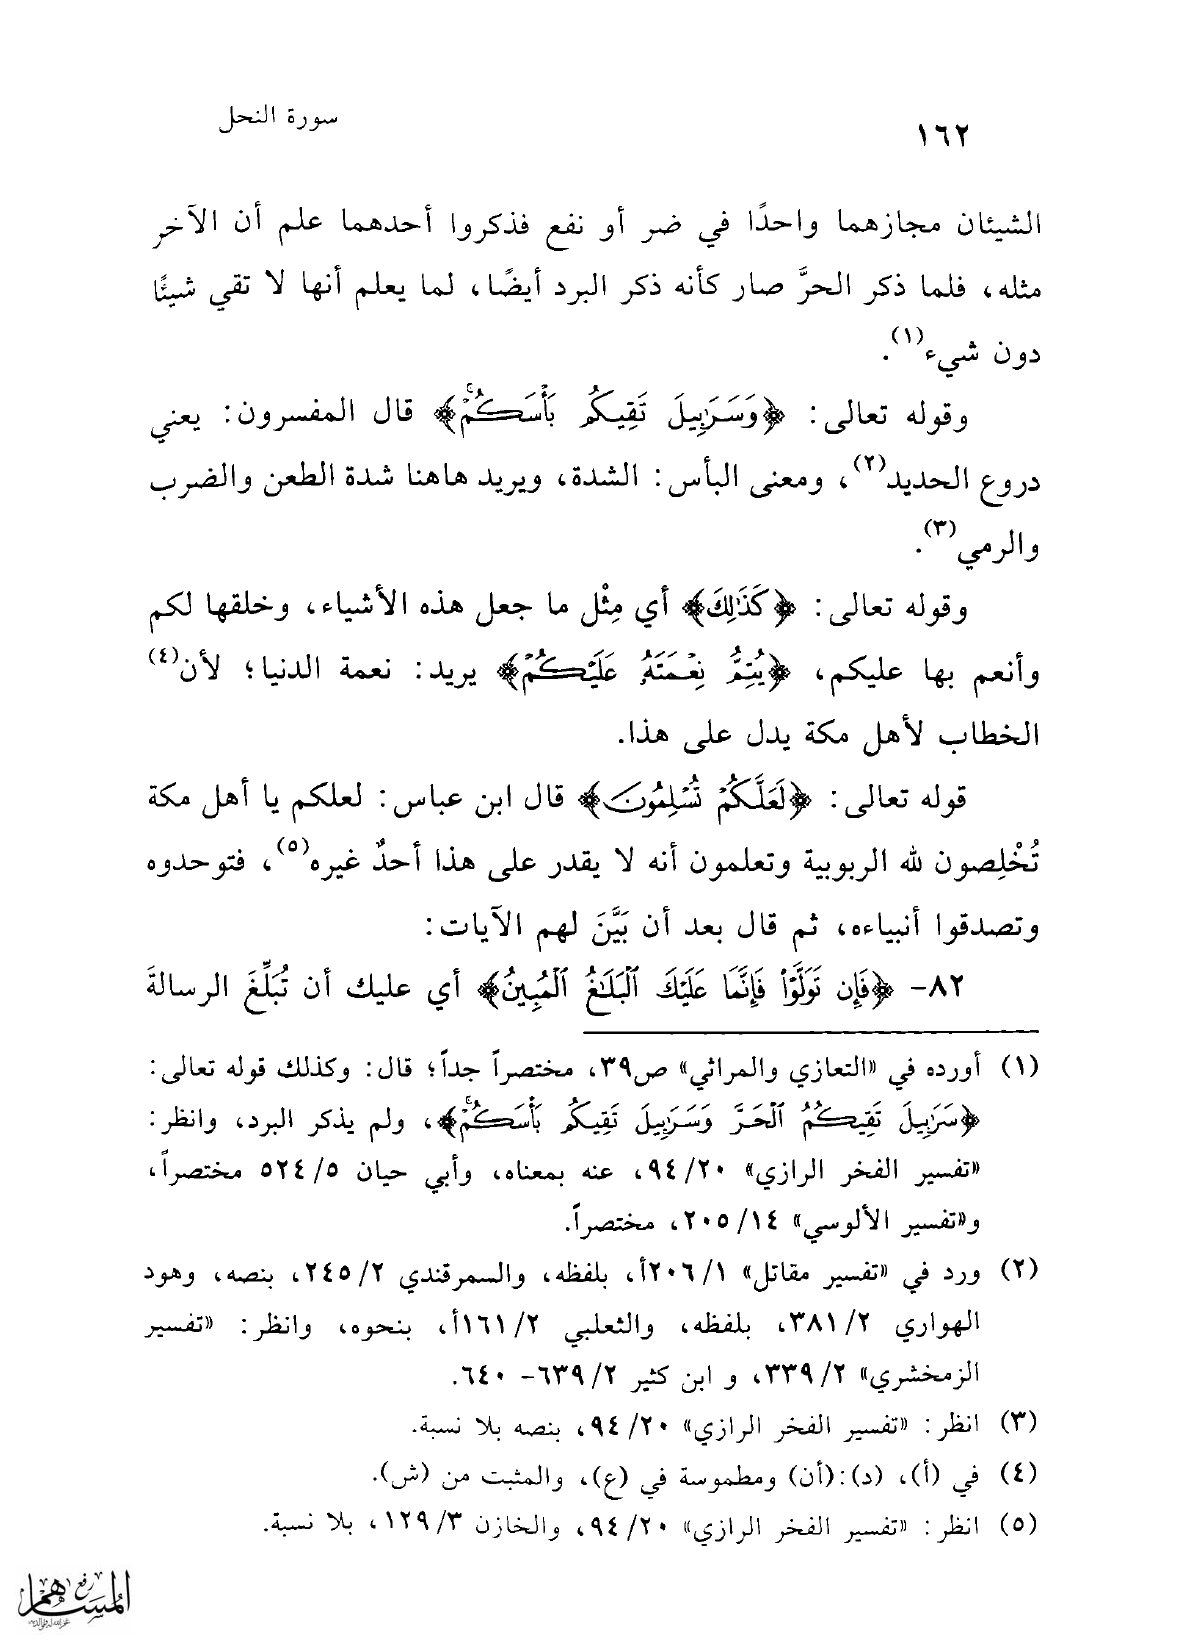 ١٦٢ سورة النحل
الشيئان مجازهما واحدًا في ضر أو نفع فذكروا أحدهما علم أن الآخر
مثله، فلما ذكر الحرَّ صار كأنه ذكر البرد أيضًا، لما يعلم أنها لا تقي شيئًا
دون شيء(١).
وقوله تعالى: ﴿وَسَرَٰبِيلَ تَقِيكُم بَأۡسَكُمۡۚ﴾ قال المفسرون: يعني
دروع الحديد(٢)، ومعنى البأس: الشدة، ويريد هاهنا شدة الطعن والضرب
والرمي(٣).
وقوله تعالى: ﴿كَذَٰلِكَ﴾ أي مِثْل ما جعل هذه الأشياء، وخلقها لكم
وأنعم بها عليكم، ﴿يُتِمُّ نِعۡمَتَهُۥ عَلَيۡكُمۡ﴾ يريد: نعمة الدنيا؛ لأن(٤)
الخطاب لأهل مكة يدل على هذا.
قوله تعالى: ﴿لَعَلَّكُمۡ تُسۡلِمُونَ﴾ قال ابن عباس: لعلكم يا أهل مكة
تُخْلِصون لله الربوبية وتعلمون أنه لا يقدر على هذا أحدٌ غيره(٥)، فتوحدوه
وتصدقوا أنبياءه، ثم قال بعد أن بَيَّنَ لهم الآيات:
٨٢- ﴿فَإِن تَوَلَّوۡاْ فَإِنَّمَا عَلَيۡكَ ٱلۡبَلَٰغُ ٱلۡمُبِينُ﴾ أي عليك أن تُبَلِّغَ الرسالةَ
(١) أورده في «التعازي والمراثي» ص٣٩، مختصراً جداً؛ قال: وكذلك قوله تعالى:
﴿سَرَٰبِيلَ تَقِيكُمُ ٱلۡحَرَّ وَسَرَٰبِيلَ تَقِيكُم بَأۡسَكُمۡۚ﴾، ولم يذكر البرد، وانظر:
«تفسير الفخر الرازي» ٢٠/ ٩٤، عنه بمعناه، وأبي حيان ٥/ ٥٢٤ مختصراً،
و«تفسير الألوسي» ١٤/ ٢٠٥، مختصراً.
(٢) ورد في «تفسير مقاتل» ١/ ٢٠٦أ، بلفظه، والسمرقندي ٢/ ٢٤٥، بنصه، وهود
الهواري ٢/ ٣٨١، بلفظه، والثعلبي ٢/ ١٦١أ، بنحوه، وانظر: «تفسير
الزمخشري» ٢/ ٣٣٩، و ابن كثير ٢/ ٦٣٩- ٦٤٠.
(٣) انظر: «تفسير الفخر الرازي» ٢٠/ ٩٤، بنصه بلا نسبة.
(٤) في (أ)، (د):(أن) ومطموسة في (ع)، والمثبت من (ش).
(٥) انظر: «تفسير الفخر الرازي» ٢٠/ ٩٤، والخازن ٣/ ١٢٩، بلا نسبة.